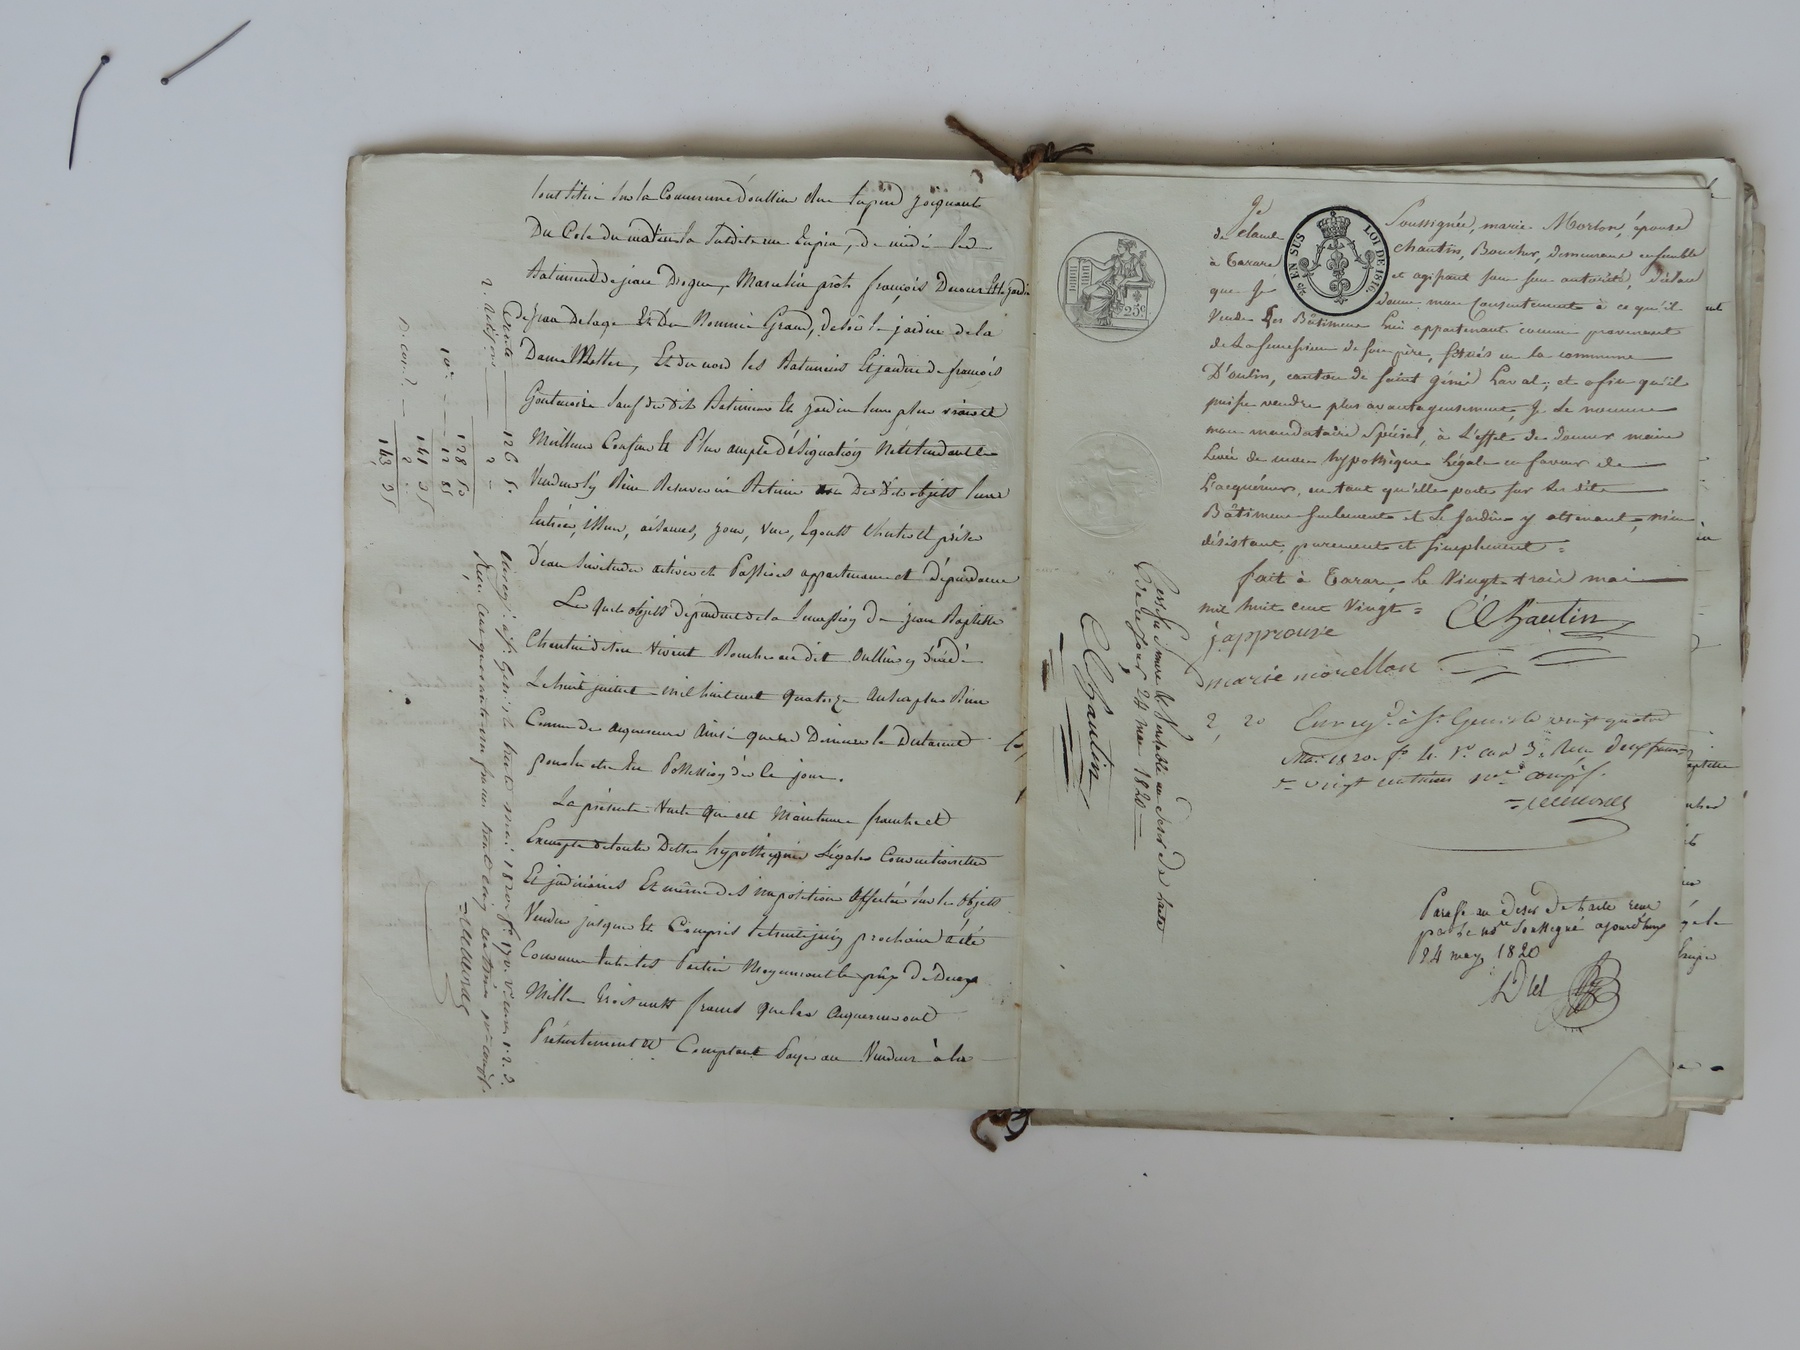 tout situé sur la Commune d'oullin Rue tupin joignant
Du Coté du matin la Susdite rue tupin, de midi les
Batiments de jean Drogue, Marcelin prôt françois Ducour Et le jardin
de jean Delage Et Du Nommé Grand, de soir le jardin de la
Dame Et Du nord les Batiments Et jardin de françois
Gouttenoire Sauf du Dit Batiment Et jardin leurs plus vrais et
Meilleurs Confins Et Plus ample Désignation
Vendeur S'y Rien Reserver ni Retenir Des Dits objets leurs
Entrées, issues, aisances, jour, vue, Egouts et prise
D'eau Servitudes actives et Passives appartenances et dépendances
Les quels objets dépendent de la Succession de jean Baptiste
Chantin de son vivant Boucher au dit Oullin y décédé
Le huit juillet mil huit cent quatorze
Comme les acquereurs Ainsi que
pour Entrer En Possession dès ce jour.
La présente Vente Que est Maintenue franche et
Exempte de toutes Dettes hypothèques Légales Conventionelles
Et judiciaires Et même des imposition Affectés Sur les objets
Vendus jusques Et Compris le trente juin prochain a été
Convenue Entre les Parties Moyennant le prix de Deux
Mille trois cents francs que les acquereurs ont
Présentement Et Comptant Payé au Vendeur à la
2. Rectifions 2
126 5.
128 50
10e 12 85
141 35
D. cond. 2
143 35
Enregé à St Genis le trente mai 1820 fo 170 vo cases 1. 2. 3.
Reçu Cent quarante un francs trente cinq centimes pr compris.
25c
EN SUS LOI DE 1816
Je Soussignée, marie Morlon, épouse
de claude chantin, Boucher, demeurant ensemble
à Tarare et agissant sous son autorité, déclare
que Je donne mon Consentement à ce qu'il
Vende Les Bâtimens lui appartenant comme provenant
de La Succession de son père, situés en la commune
D'oulin, canton de Saint génis Laval; et afin qu'il
puisse vendre plus avantageusement, Je Le nomme
mon mandataire Spécial, à L'effet de donner main
Levée de mon hypothèque Légale en faveur de
L'acquéreur, en tant qu'elle porte sur Les dits
Bâtimens Seulement et Le Jardin y attenant, m'en
désistant purement et Simplement =
fait à Tarare, le Vingt trois mai
mil huit cent Vingt =
CChantin
japprouve
marie morellon
2, 20 Enregé à St Genis le vingt quatre
Mai 1820 fo 4. Vo case 3. Reçu deux francs
vingt centimes 10e compris.
Certifié Sincère & Véritable au desir de l'acte
De ce jour 24 mai 1820
CChantin
Parafé au desir De l'acte reçu
par le nore Soussigné aujourd'huy
24 may 1820